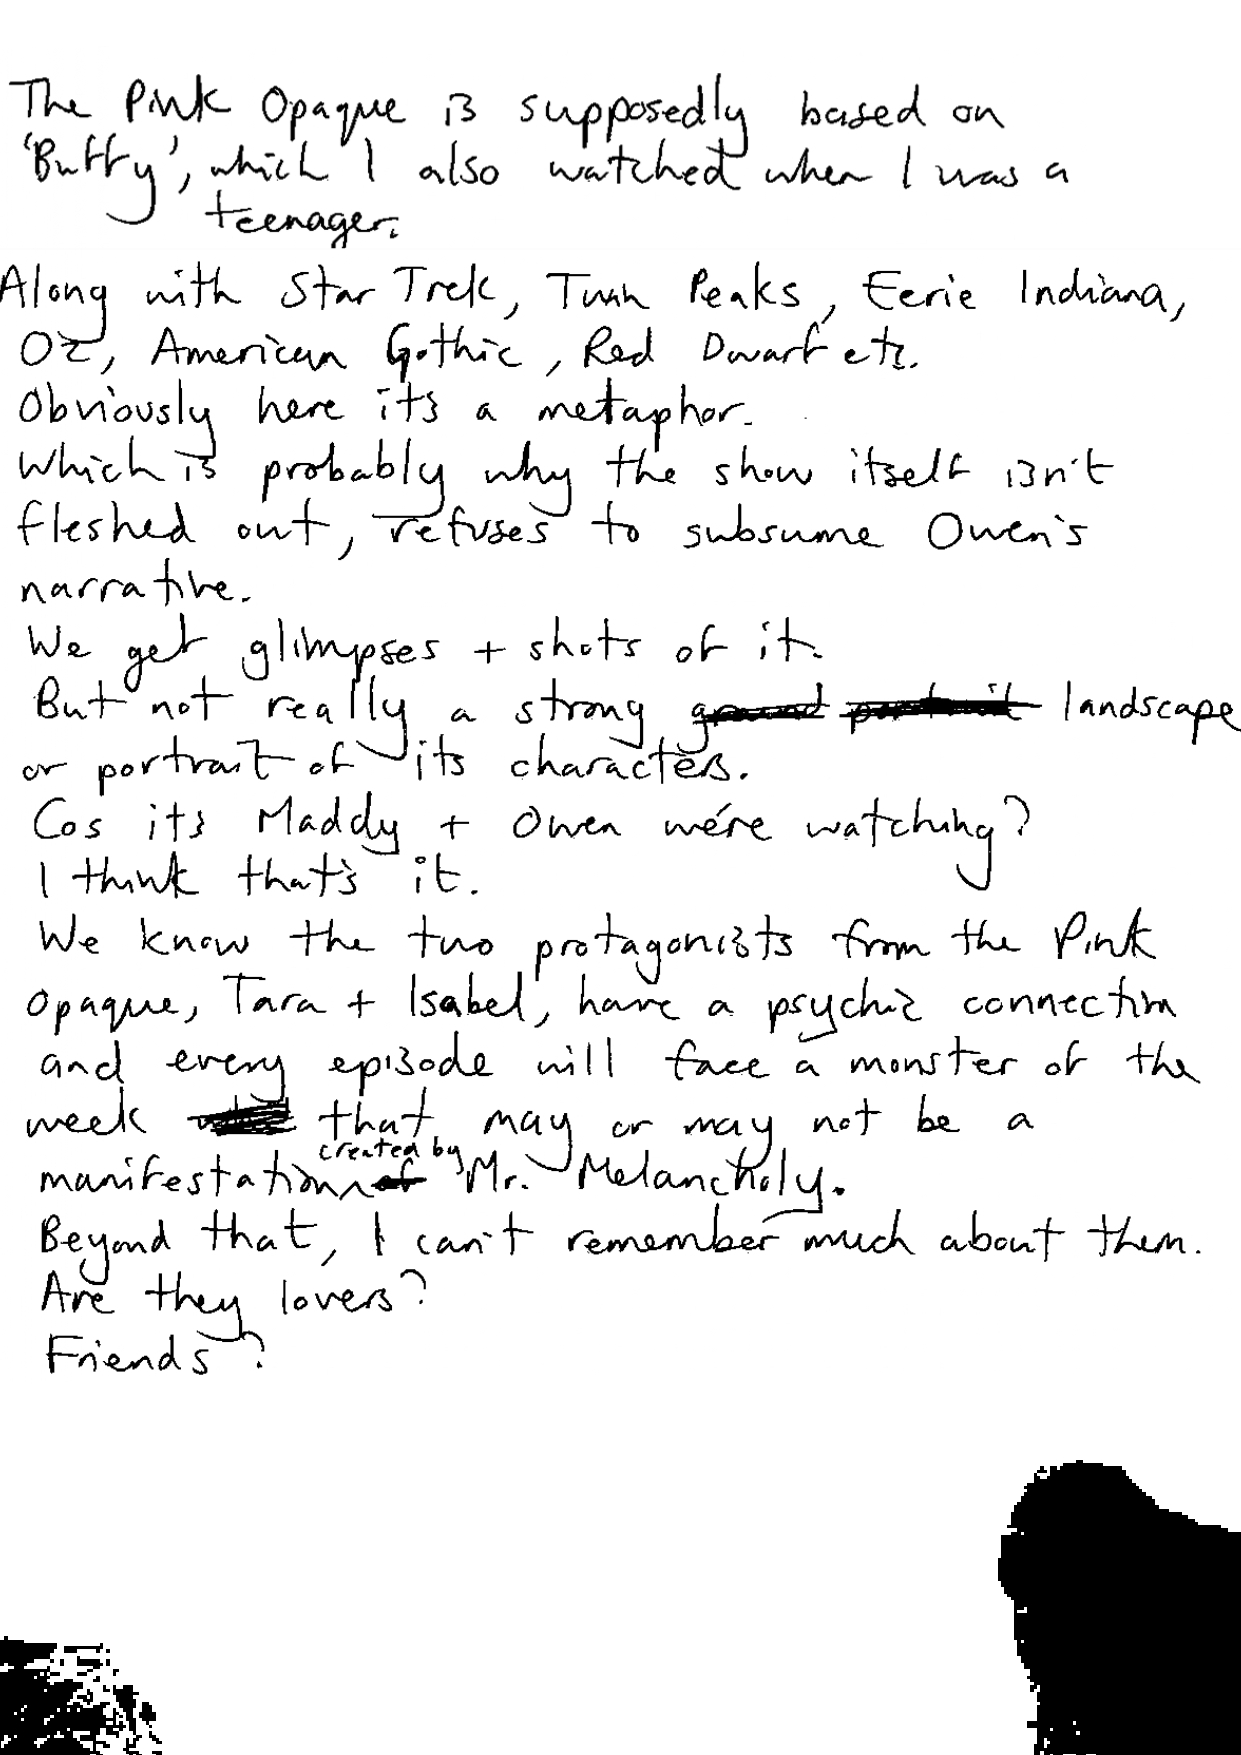 The Pink Opaque is supposedly based on
'Buffy', which I also watched when I was a
teenager.
Along with Star Trek, Twin Peaks, Eerie Indiana,
Oz, American Gothic, Red Dwarf etc.
Obviously here its a metaphor.
Which is probably why the show itself isn't
fleshed out, refuses to subsume Owen's
narrative.
We get glimpses + shots of it.
But not really a strong landscape
or portrait of its characters.
Cos its Maddy + Owen we're watching?
I think that's it.
We know the two protagonists from the Pink
Opaque, Tara + Isabel, have a psychic connection
and every episode will face a monster of the
week that may or may not be a
manifestation created by Mr. Melancholy.
Beyond that, I can't remember much about them.
Are they lovers?
Friends?